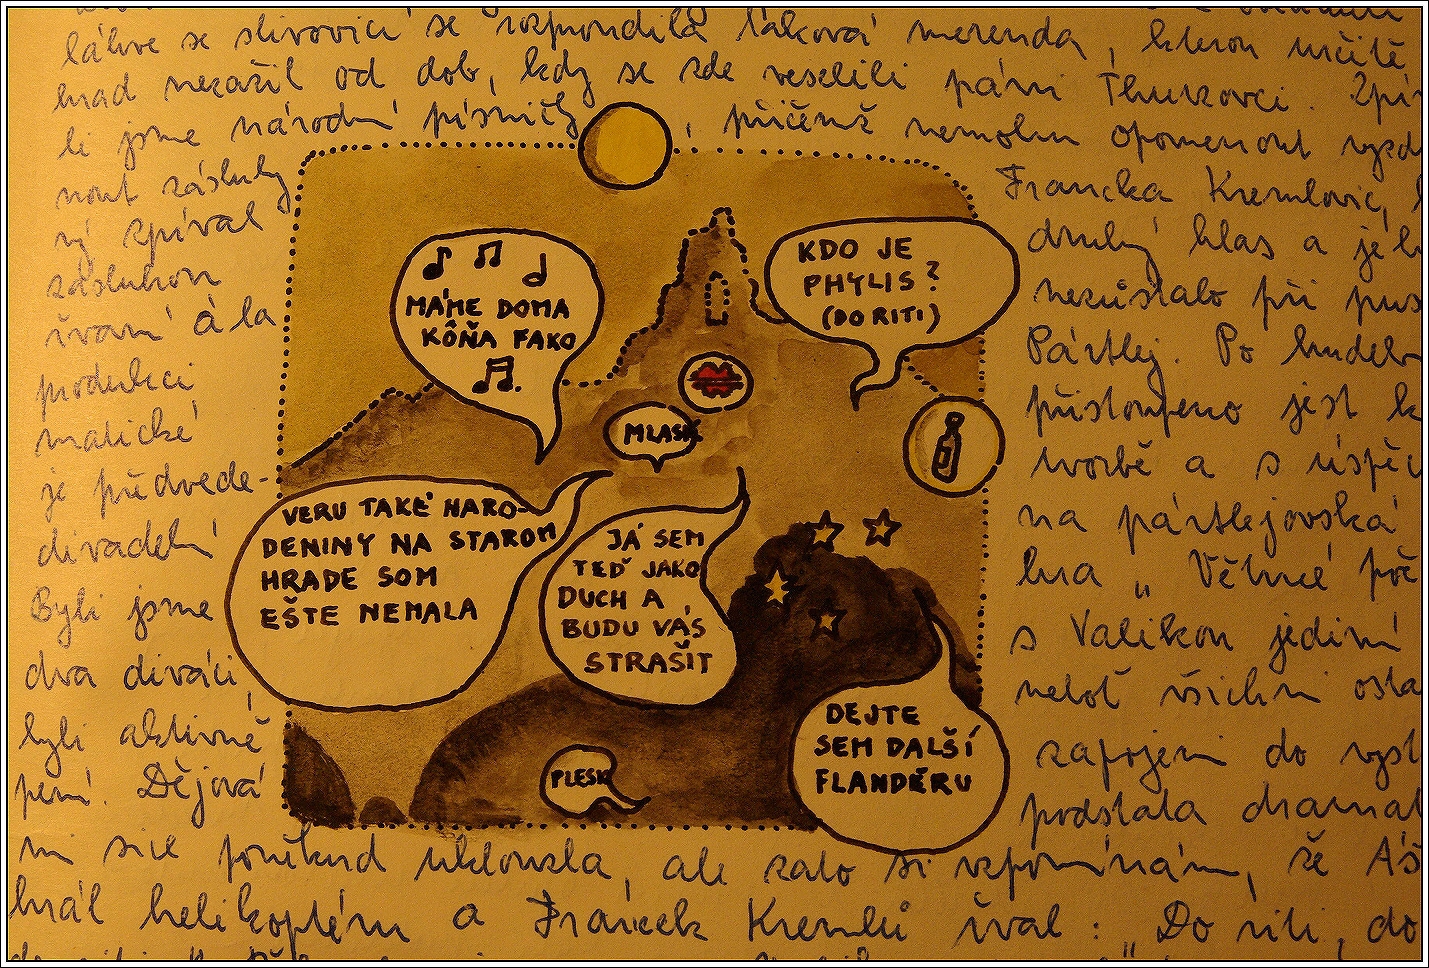 láhve se slivovicí se rozproudila taková merenda, kterou určitě
hrad nezažil od dob, kdy se zde veselili páni Thurzovci. Zpí
li jsme národní písničky, přičemž nemohu opomenout vyzd
nout zásluhy Francka Kremlovic, k
rý zpíval druhý hlas a jeh
zásluhou nezůstalo při pus
řvaní à la Pártlej. Po hudebn
produkci přistoupeno jest k
matické tvorbě a s úspěc
je předvede- na pártlejovská
divadelní hra „Věhné
Byli jsme s Valikou jediní
dva diváci, neboť všichni osta
byli aktivně zapojeni do vyst
pení. Dějová podstata dramat
mi sice poněkud uklouzla, ale zato si vzpomínám, že Áš
hrál helikoptéru a Francek Kremlů řval: "Do riti, do
MÁME DOMA
KÔŇA FAKO
KDO JE
PHYLIS?
(DO RITI)
MLASK
VERU TAKÉ NARO-
DENINY NA STAROM
HRADE SOM
EŠTE NEMALA
JÁ SEM
TEĎ JAKO
DUCH A
BUDU VÁS
STRAŠIT
DEJTE
SEM DALŠÍ
FLANDĚRU
PLESK